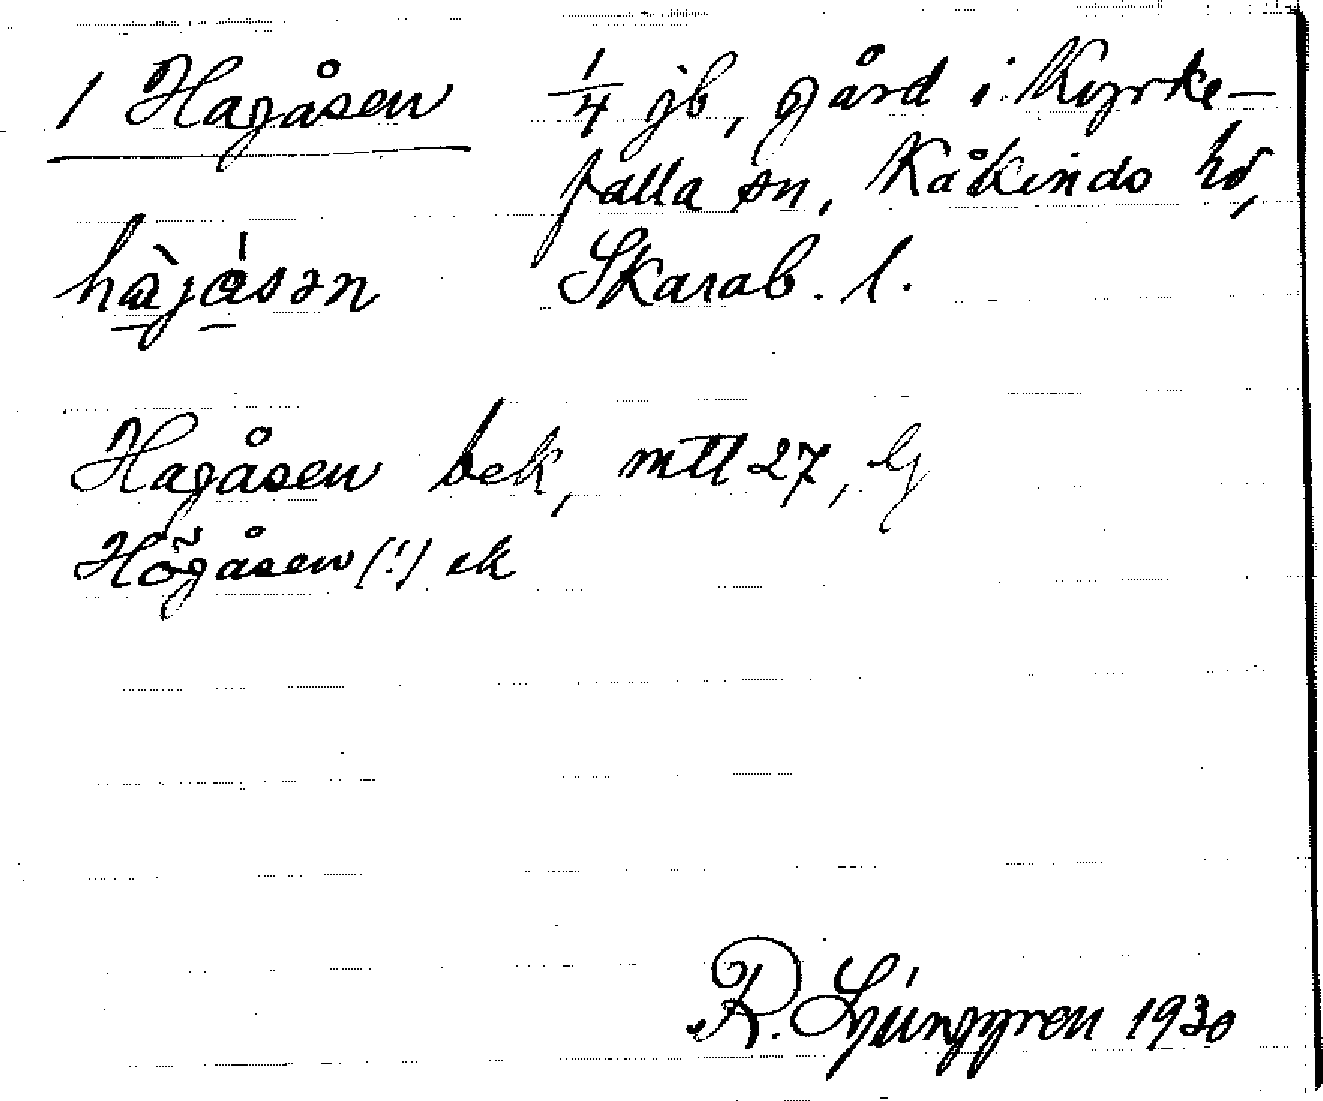 1 Hagåsen 1/4 jb, gård i Kyrke-
falla sn, Kåkinds hd,
hàjásən Skarab. l.
Hagåsen bek, mtl 27, G
Högåsen (!) ek
R. Ljunggren 1930